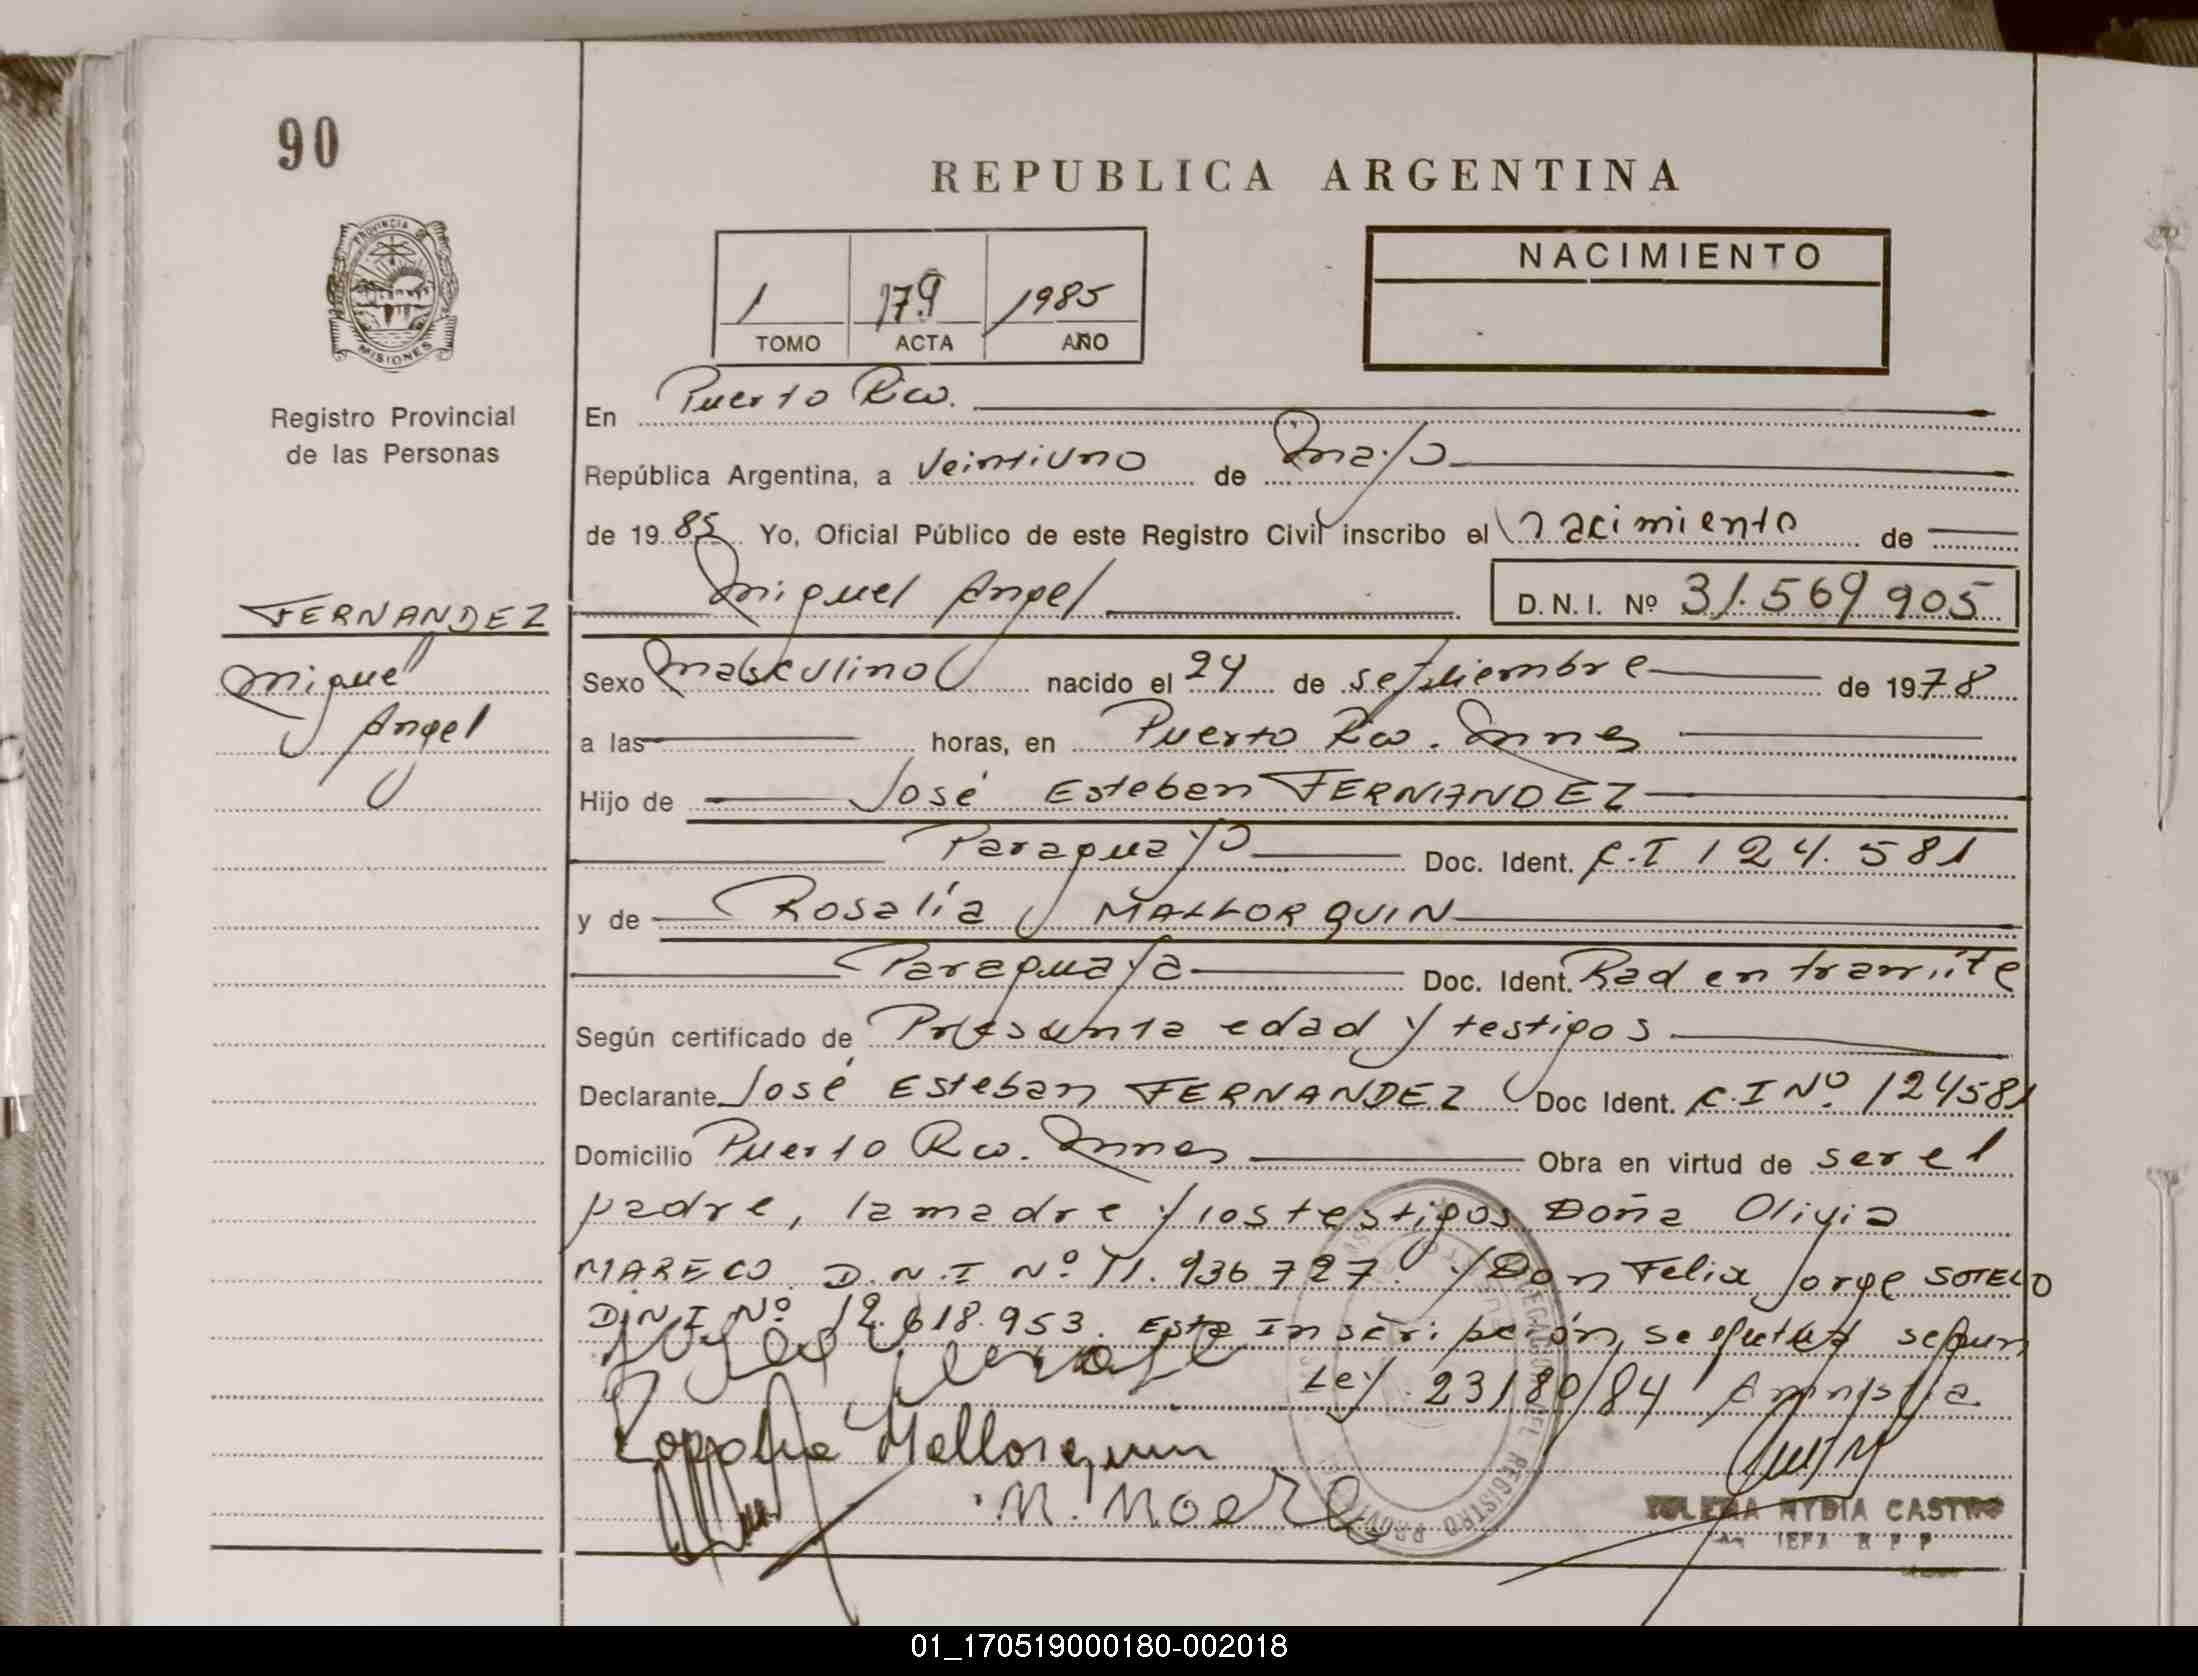 90
REPUBLICA ARGENTINA
PROVINCIA DE
MISIONES
Registro Provincial
de las Personas
1 179 1985
TOMO ACTA AÑO
NACIMIENTO
En Puerto Rico.
República Argentina, a Veintiuno de Mayo
de 1985 Yo, Oficial Público de este Registro Civil inscribo el Nacimiento de
Miguel Angel D.N.I. Nº 31.569 905
FERNANDEZ
Miguel
Angel
Sexo Masculino nacido el 24 de septiembre de 1978
a las horas, en Puerto Rico. Mnes
Hijo de José Esteban FERNANDEZ
Paraguayo Doc. Ident. C.I 124.581
y de Rosalía MALLORQUIN
Paraguaya Doc. Ident. Rad en tramite
Según certificado de Presunta edad y testigos
Declarante José Esteban FERNANDEZ Doc Ident. C.I Nº 124581
Domicilio Puerto Rico. Mnes Obra en virtud de ser el
padre, la madre y los testigos Doña Olivia
MARECO D.N.I Nº 11.936 727. y Don Felix Jorge SOTELO
D.N.I Nº 12.618.953. Esta Inscripción, se efectua segun
Ley 23180/84 Amnistia
Mellorquin
M. Mareco
REGISTRO
NYDIA CASTRO
01_170519000180-002018